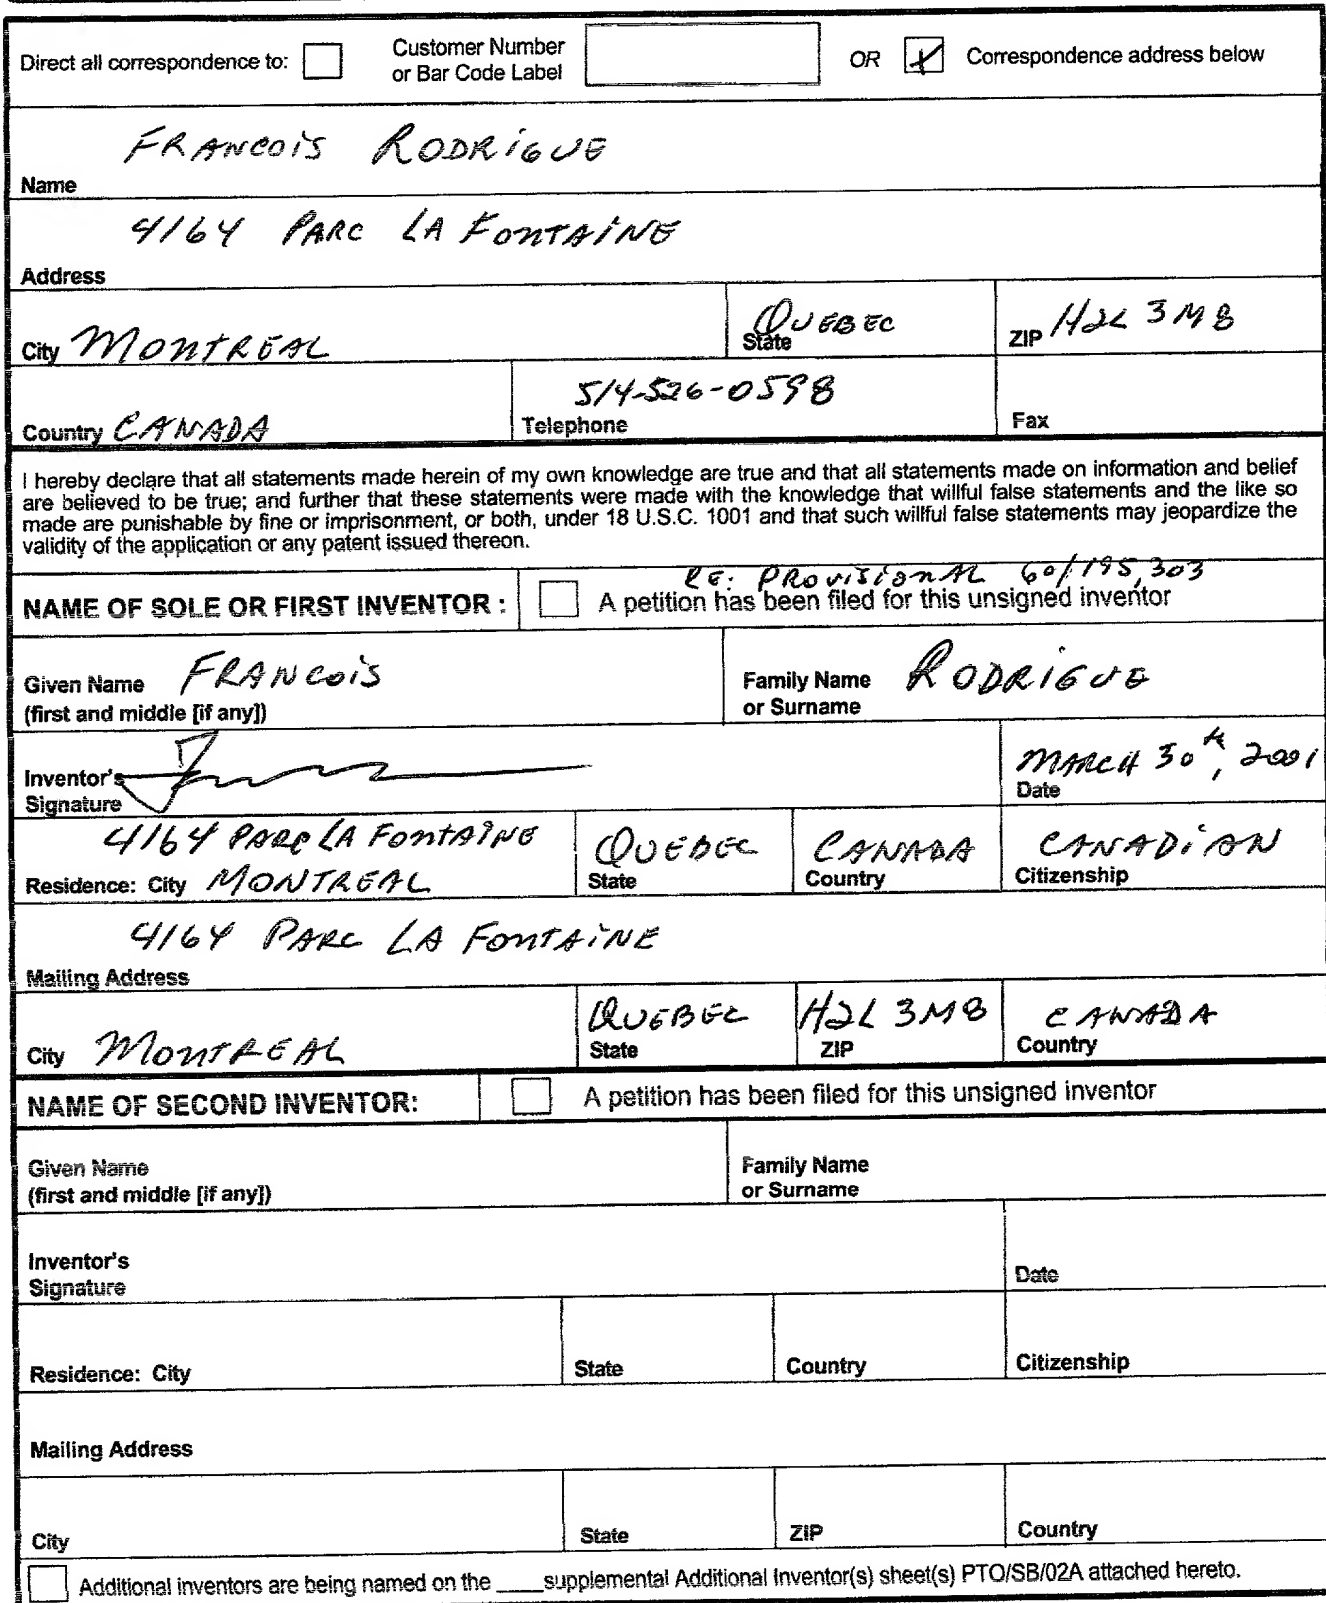 Direct all correspondence to: Customer Number or Bar Code Label OR Correspondence address below
FRANCOIS RODRIGUE
Name
4164 PARC LA FONTAINE
Address
City MONTREAL QUEBEC State ZIP H2L 3M8
Country CANADA 514-526-0598 Telephone Fax
I hereby declare that all statements made herein of my own knowledge are true and that all statements made on information and belief
are believed to be true; and further that these statements were made with the knowledge that willful false statements and the like so
made are punishable by fine or imprisonment, or both, under 18 U.S.C. 1001 and that such willful false statements may jeopardize the
validity of the application or any patent issued thereon.
RE: PROVISIONAL 60/195,303
NAME OF SOLE OR FIRST INVENTOR : A petition has been filed for this unsigned inventor
Given Name FRANCOIS Family Name RODRIGUE
(first and middle [if any]) or Surname
MARCH 30th, 2001
Inventor's Date
Signature
4164 PARC LA FONTAINE QUEBEC CANADA CANADIAN
Residence: City MONTREAL State Country Citizenship
4164 PARC LA FONTAINE
Mailing Address
QUEBEC H2L 3M8 CANADA
City MONTREAL State ZIP Country
NAME OF SECOND INVENTOR: A petition has been filed for this unsigned inventor
Given Name Family Name
(first and middle [if any]) or Surname
Inventor's
Signature Date
Residence: City State Country Citizenship
Mailing Address
City State ZIP Country
Additional inventors are being named on the ____supplemental Additional Inventor(s) sheet(s) PTO/SB/02A attached hereto.